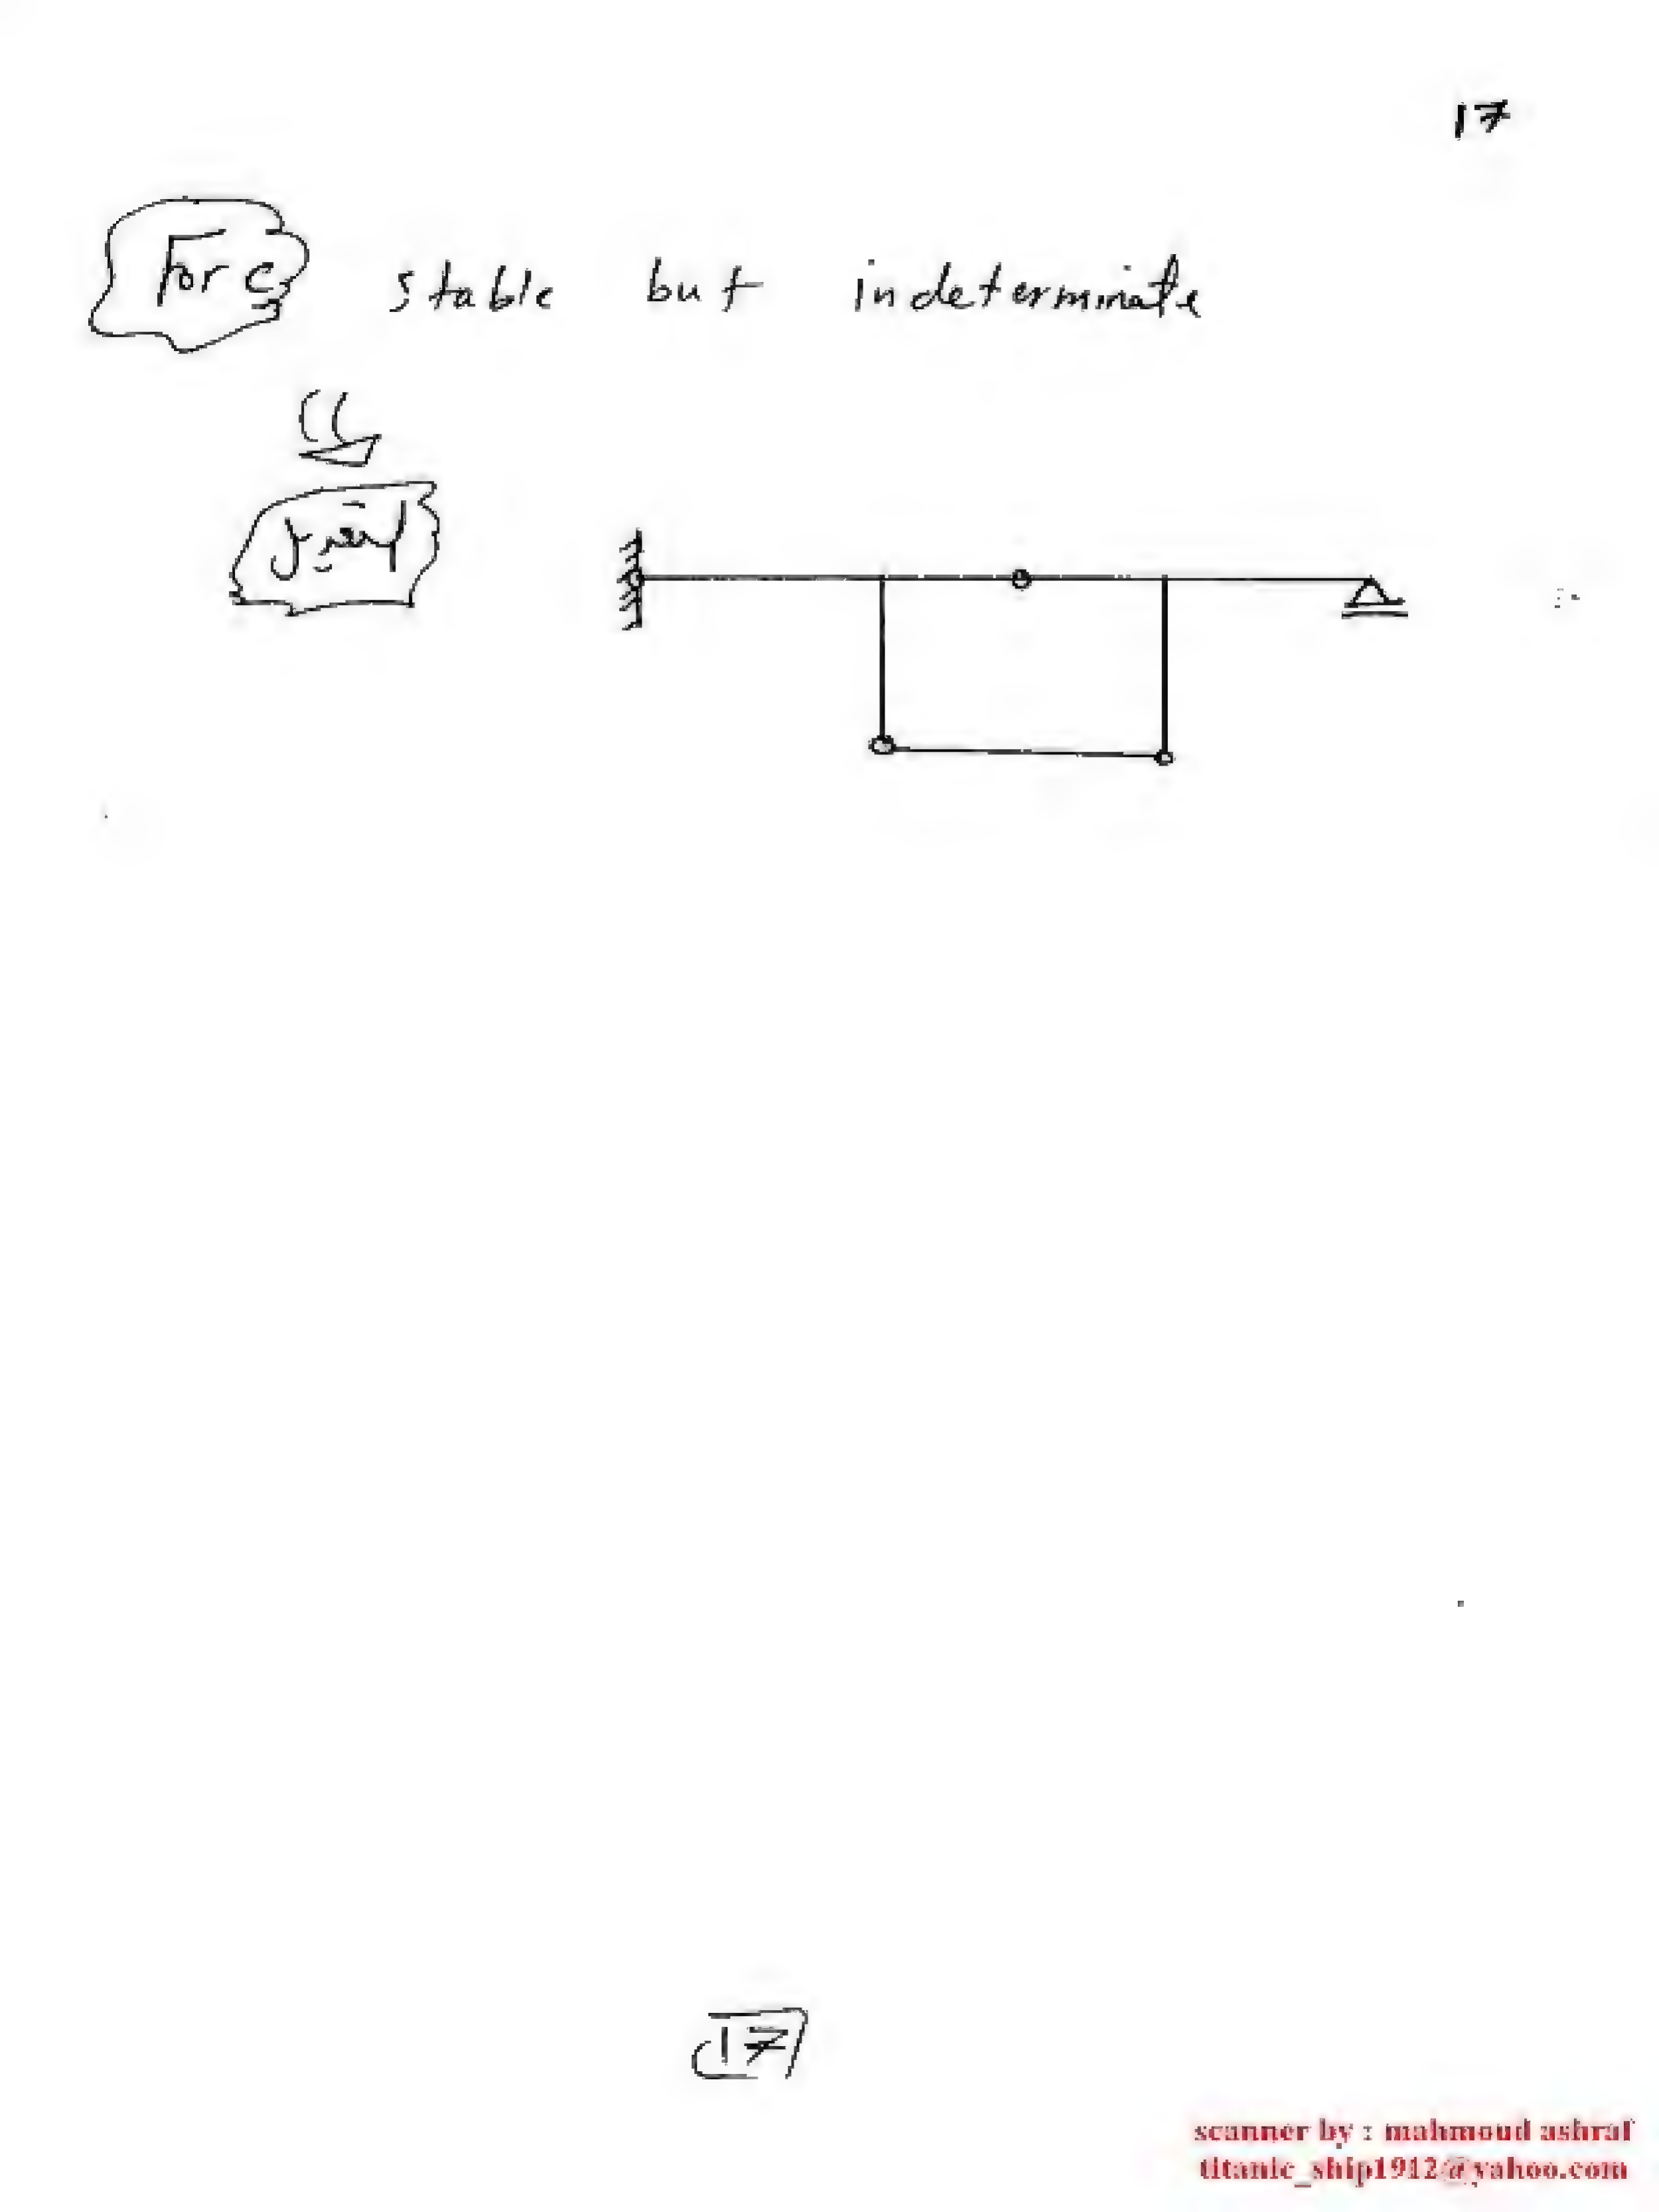 17
For c stable but indeterminate
17
scanner by : mahmoud ashraf
titanic_ship1912@yahoo.com